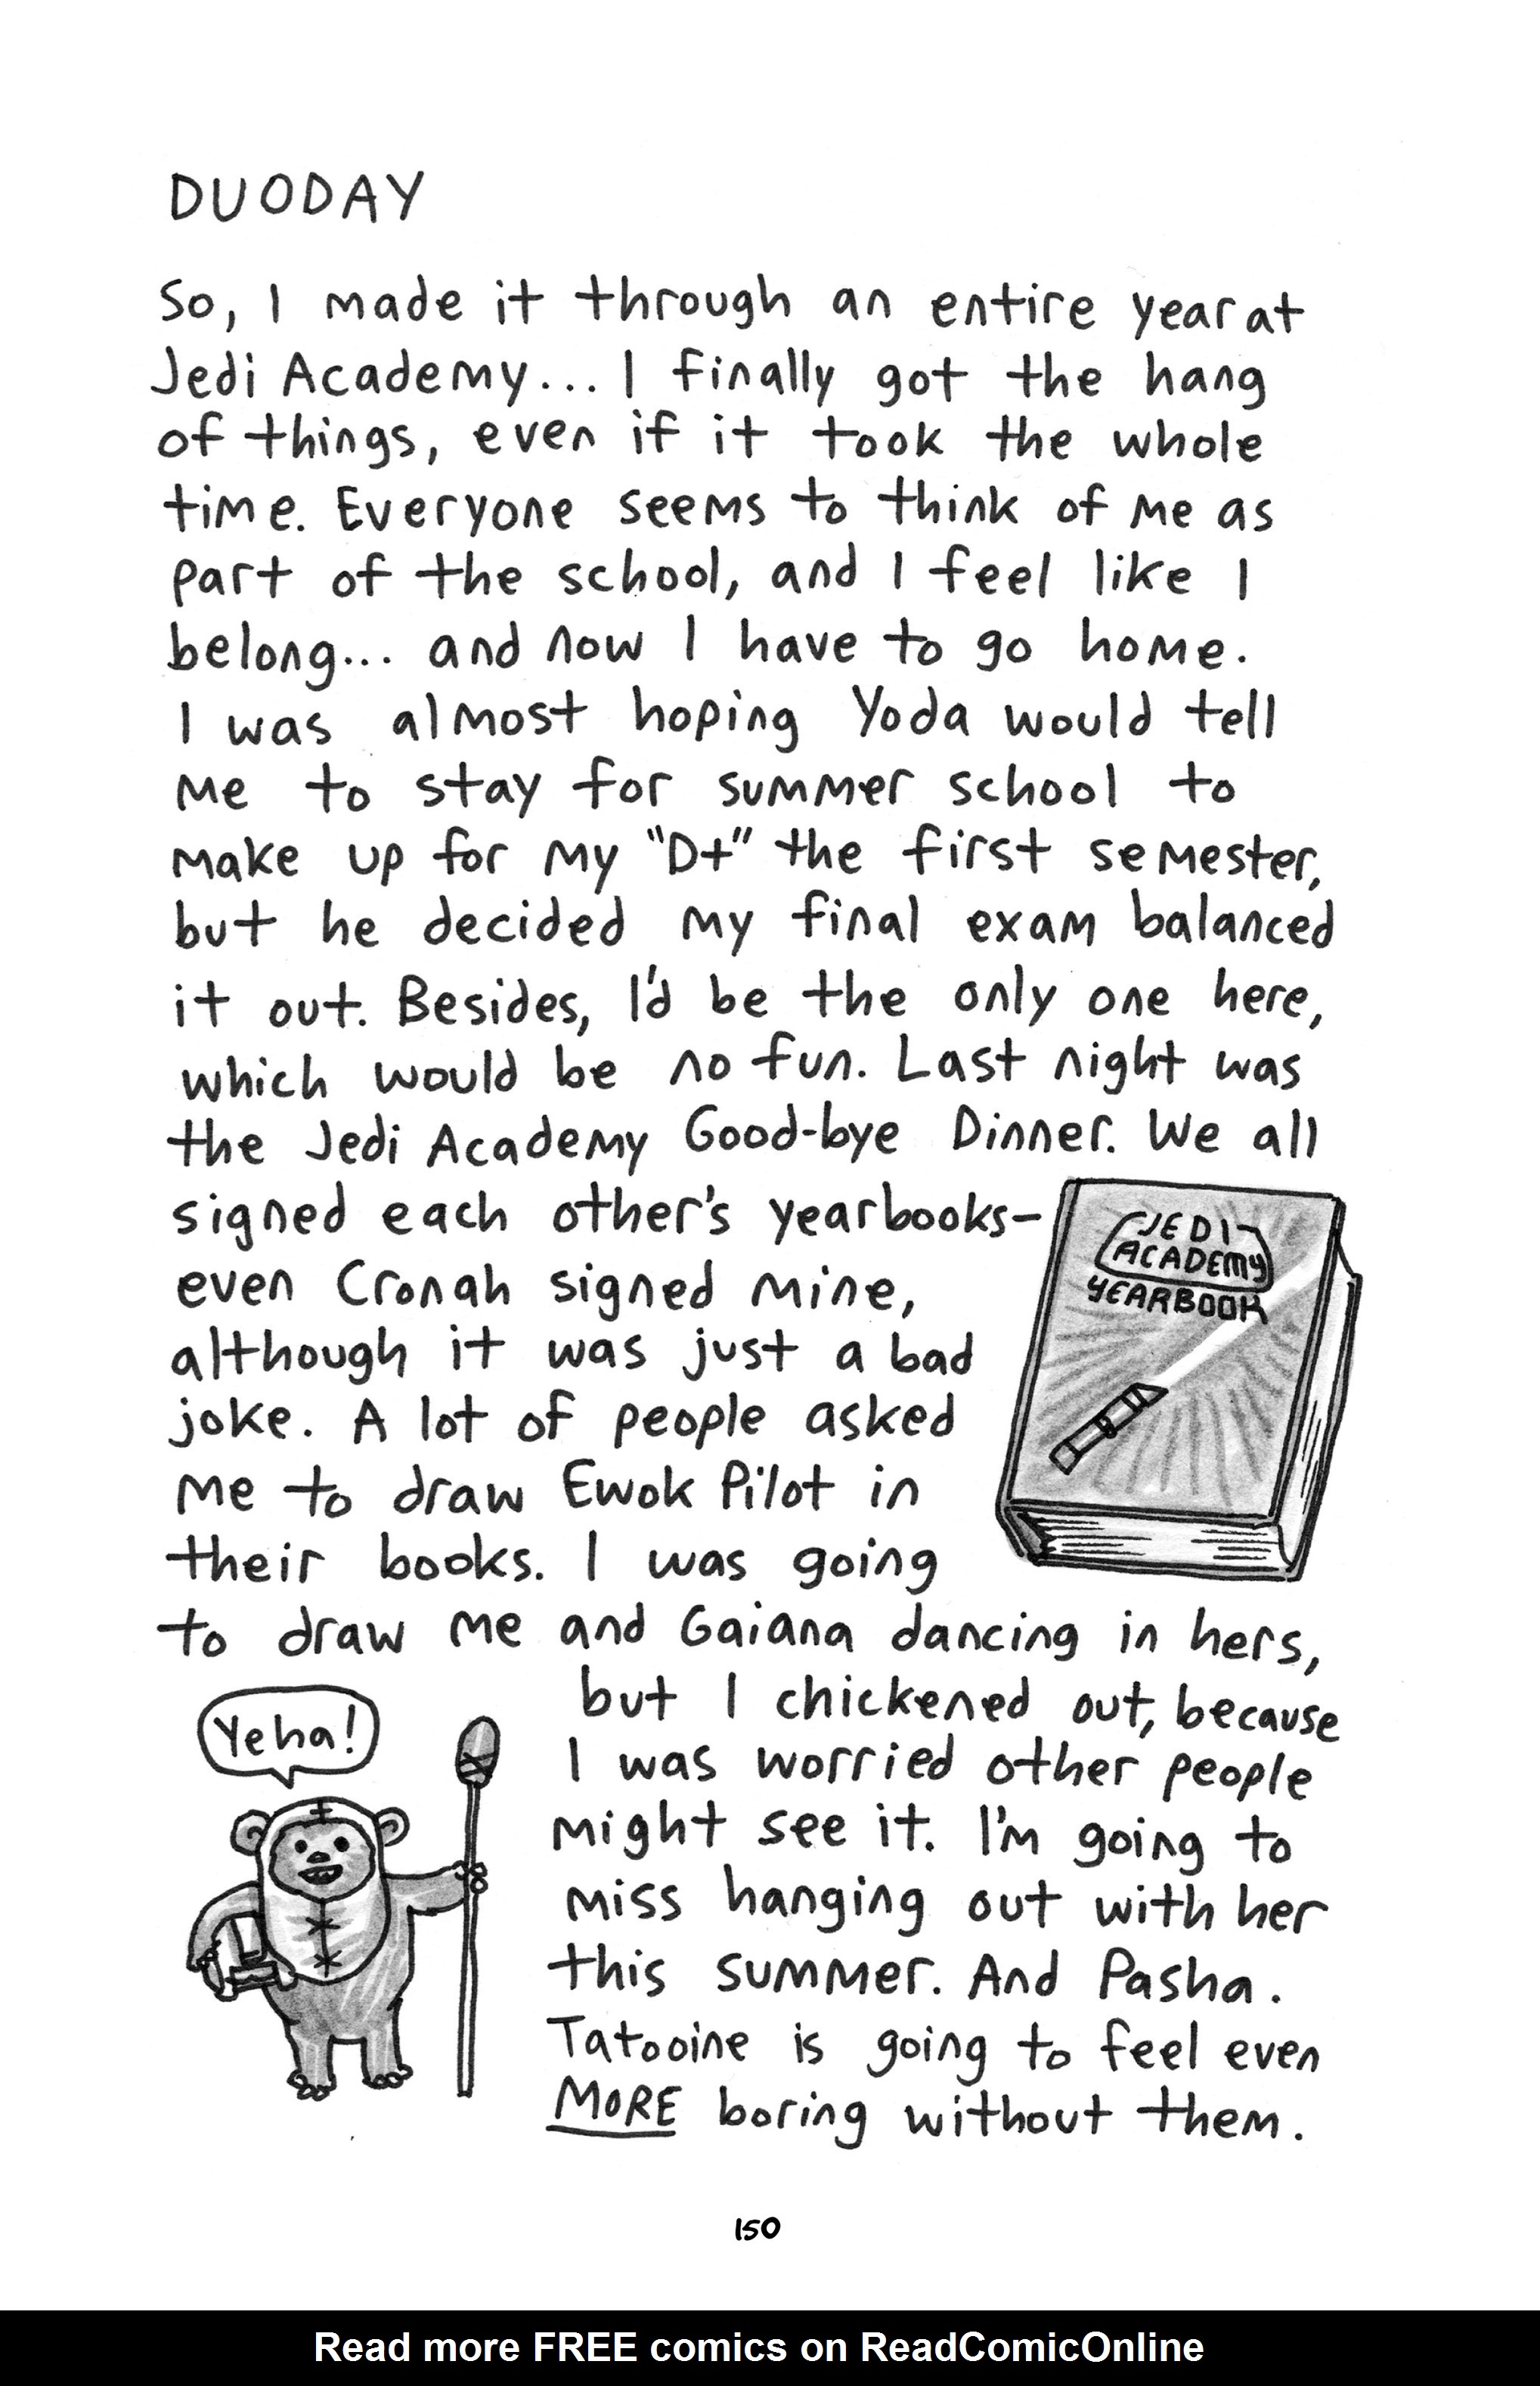 DUODAY
So, I made it through an entire year at
Jedi Academy... I finally got the hang
of things, even if it took the whole
time. Everyone seems to think of me as
part of the school, and I feel like I
belong... and now I have to go home.
I was almost hoping Yoda would tell
me to stay for summer school to
make up for my "D+" the first semester,
but he decided my final exam balanced
it out. Besides, I'd be the only one here,
which would be no fun. Last night was
the Jedi Academy Good-bye Dinner. We all
signed each other's yearbooks-
even Cronah signed mine,
although it was just a bad
joke. A lot of people asked
me to draw Ewok Pilot in
their books. I was going
to draw me and Gaiana dancing in hers,
but I chickened out, because
I was worried other people
might see it. I'm going to
miss hanging out with her
this summer. And Pasha.
Tatooine is going to feel even
MORE boring without them.
JEDI
ACADEMY
YEARBOOK
Yeha!
150
Read more FREE comics on ReadComicOnline